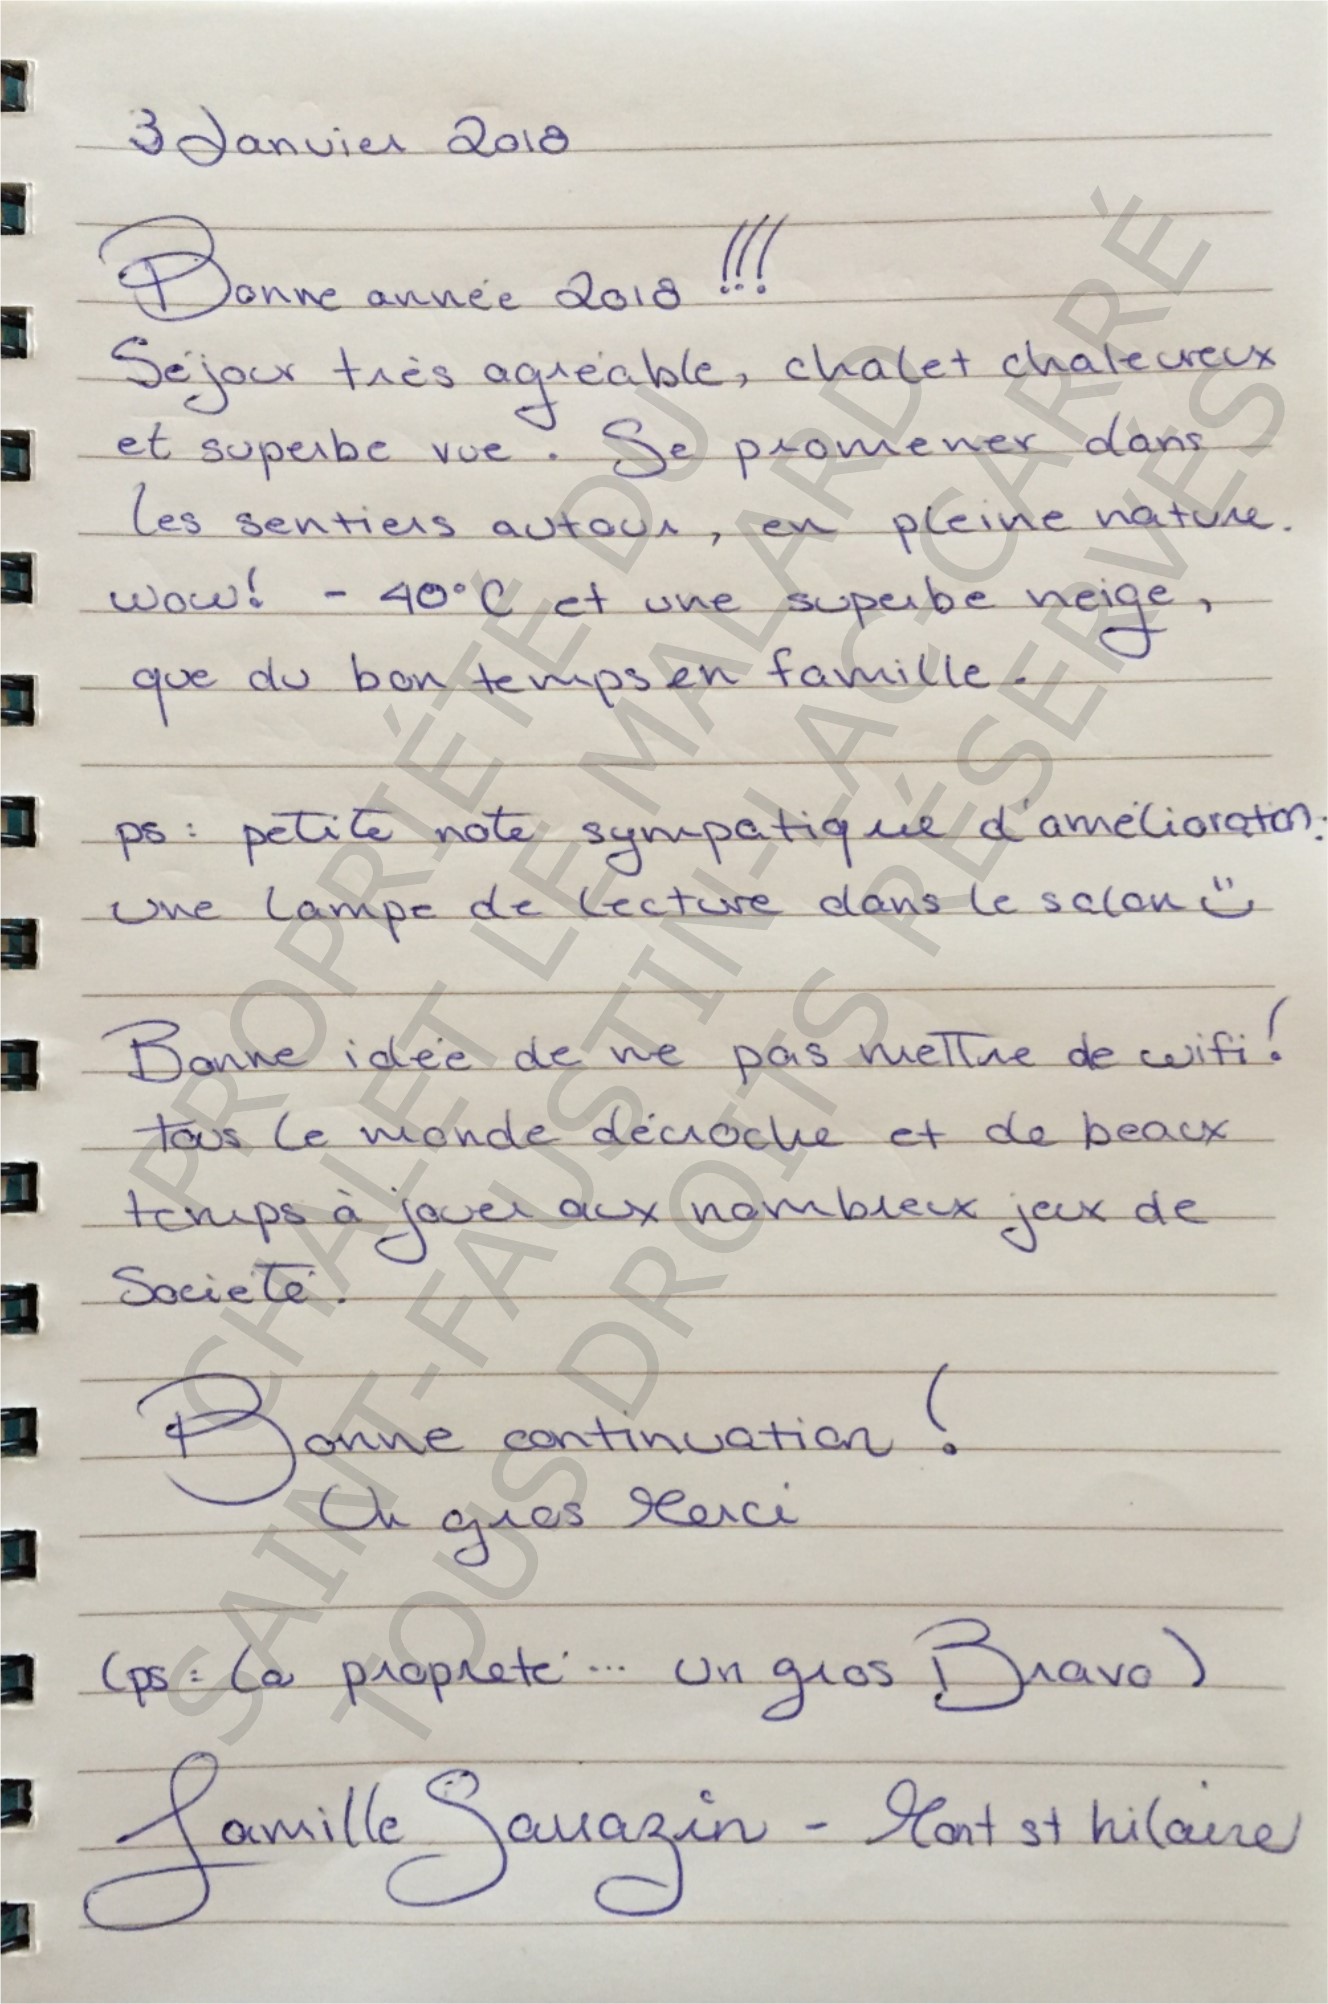 3 Janvier 2018
Bonne année 2018 !!!
Séjour très agréable, chalet chaleureux
et superbe vue. Se promener dans
les sentiers autour, en pleine nature.
wow! - 40°C et une superbe neige,
que du bon temps en famille.
ps: petite note sympatique d'amélioration:
une lampe de lecture dans le salon
Bonne idée de ne pas mettre de wifi!
tous le monde décroche et de beaux
temps à jouer aux nombreux jeux de
Société.
Bonne continuation!
Un gros Merci
(ps: la propreté... un gros Bravo)
Famille Sarrazin - Mont st hilaire
PROPRIÉTÉ DU
CHALET LE MALARD
SAINT-FAUSTIN-LAC-CARRÉ
TOUS DROITS RÉSERVÉS